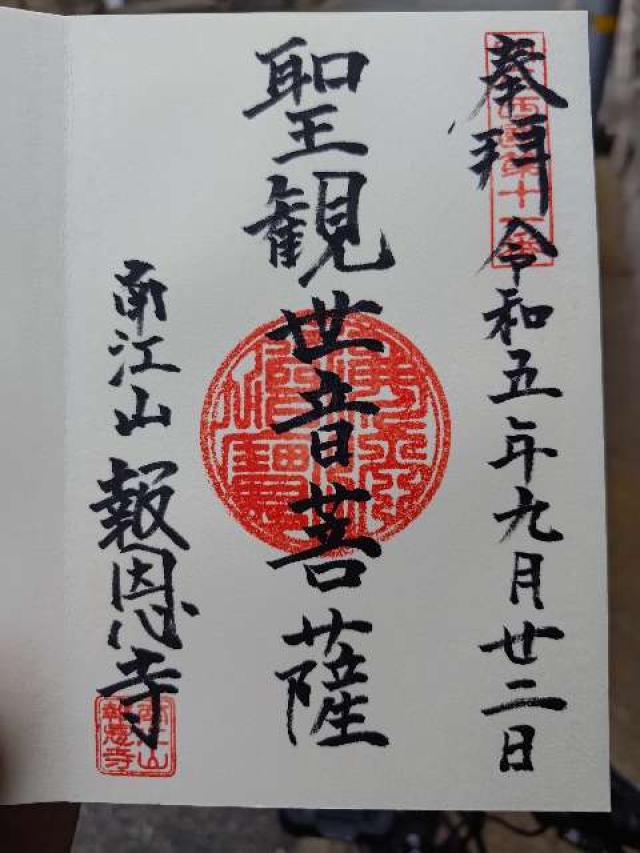 奉拝 令和五年九月廿二日
西国第十
聖観世音菩薩
南江山 報恩寺
南江山
報恩寺